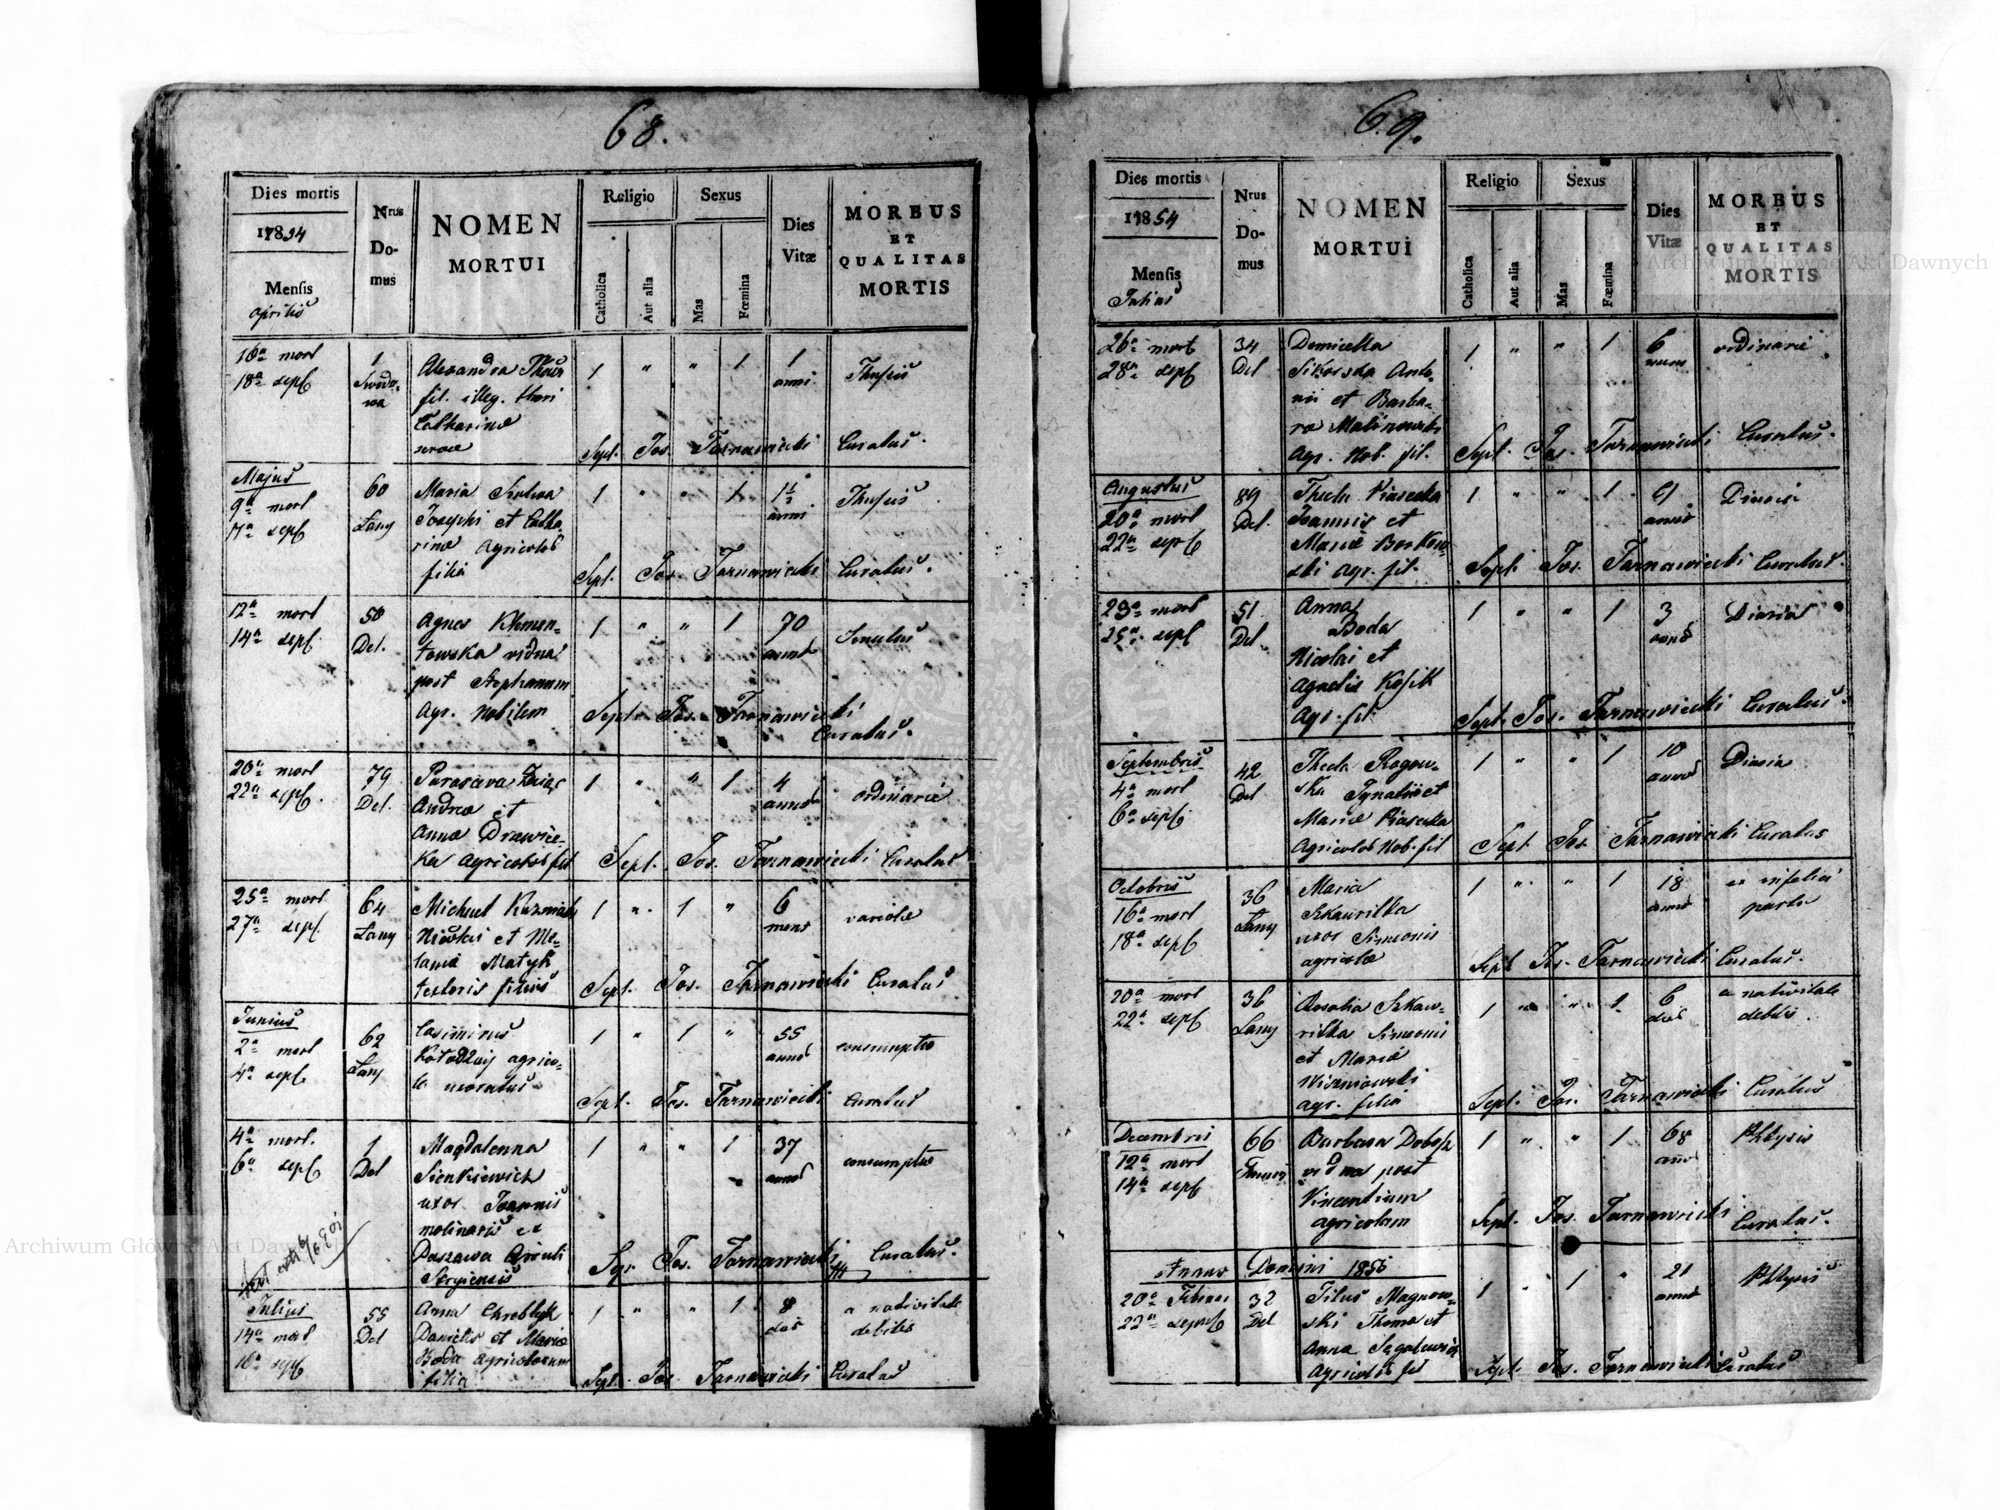 68.
Dies mortis
1854
Mensis
Aprilis
Nrus
Do-
mus
NOMEN
MORTUI
Religio
Catholica
Aut alia
Sexus
Mas
Fœmina
Dies
Vitæ
MORBUS
ET
QUALITAS
MORTIS
16a mort
18a sepl
1
Alexandra
fil. illeg. thori
Catharinæ
1 " " 1
1
anni
Thusis
Sepl. Jos. Tarnawiecki Curatus.
Majus
9a mort
7a sepl
60
Lany
Maria
Josephi et Catha-
rinæ Agricolos
filia
1 " " 1
1 1/2
anni
Thusis
Sepl. Jos. Tarnawiecki Curatus.
12a mort
14a sepl
58
Del.
Agnes Klemen-
towska vidua
post Stephanum
Agr. Nobilem
1 " " 1
70
annos
Senectus
Sepl. Jos. Tarnawiecki
Curatus.
20a mort
22a sepl.
79
Del.
Parasceva Zając
Andreæ et
Annæ Drawiec-
ka Agricolos fil
1 " " 1
4
annos
ordinarie
Sepl. Jos. Tarnawiecki Curatus
25a mort
27a sepl.
64
Lany
Michael Kuzmiak
Nicolai et Me-
laniæ Matyk
textoris filius
1 " 1 "
6
mens
variolæ
Sepl. Jos. Tarnawiecki Curatus
Junius
2a mort
4a sepl.
62
Lany
Casimirus
Kołodziej agrico-
la uxoratus
1 " 1 "
55
annos
consumptio
Sepl. Jos. Tarnawiecki Curatus
4a mort.
6a sepl
1
Del
Magdalenna
Sienkiewich
uxor Joannis
molinaris ex
Daszawa Circuli
Stryiensis
1 " " 1
37
annos
consumptio
Sepl. Jos. Tarnawiecki Curatus.
Julius
14a mort
16a sepl
55
Del
Anna Chrobłyk
Danielis et Mariæ
Boda Agricolarum
filia
1 " " 1
8
dies
a nativitate
debilis
Sepl. Jos. Tarnawiecki Curatus
69.
Dies mortis
1854
Mensis
Julius
Nrus
Do-
mus
NOMEN
MORTUI
Religio
Catholica
Aut alia
Sexus
Mas
Fœmina
Dies
Vitæ
MORBUS
ET
QUALITAS
MORTIS
26a mort
28a sepl
34
Del
Domicella
Sikorska Anto-
nii et Barba-
ra Malinowski
Agr. Nob. fil.
1 " " 1
6
ordinarie
Sepl. Jos. Tarnawiecki Curatus.
Augustus
20a mort
22a sepl
89
Del.
Thecla Piasecka
Joannis et
Mariæ Borkow-
ski Agr. fil.
1 " " 1
annos
Diaria
Sepl. Jos. Tarnawiecki Curatus.
23a mort
25a sepl
51
Del
Anna
Boda
Nicolai et
Agnetis Kosik
Agr. fil.
1 " " 1
3
annos
Diaria
Sepl. Jos. Tarnawiecki Curatus.
Septembris
4a mort
6a sepl.
42
Del
Thecla Rogow-
ska Ignatii et
Mariæ Piasecka
Agricolos Nob. fil
1 " " 1
10
annos
Diaria
Sepl. Jos. Tarnawiecki Curatus
Octobris
16a mort
18a sepl
36
Lany
Maria
Szkawrilka
uxor Simeonis
agricolæ
1 " " 1
18
annos
ex infelici
partu
Sepl. Jos. Tarnawiecki Curatus.
20a mort
22a sepl
36
Lany
Rosalia Szkaw-
rilka Simeonis
et Mariæ
Wiszniowski
agr. filia
1 " " 1
6
dies
a nativitate
debilis
Sepl. Jos. Tarnawiecki Curatus
Decembris
12a mort
14a sepl
66
Barbara Dobosz
vidua post
Vincentium
agricolam
1 " " 1
68
Phtysis
Sepl. Jos. Tarnawiecki
Curatus.
Annus Domini 1855
20a Februar
22a sepul
32
Del
Titus Magnow-
ski Thomæ et
Anna Segalewicz
Agricolos fil
1 " 1 "
21
annos
Phtysis
Sepl. Jos. Tarnawiecki Curatus
Archiwum Główne Akt Dawnych
Archiwum Główne Akt Dawnych